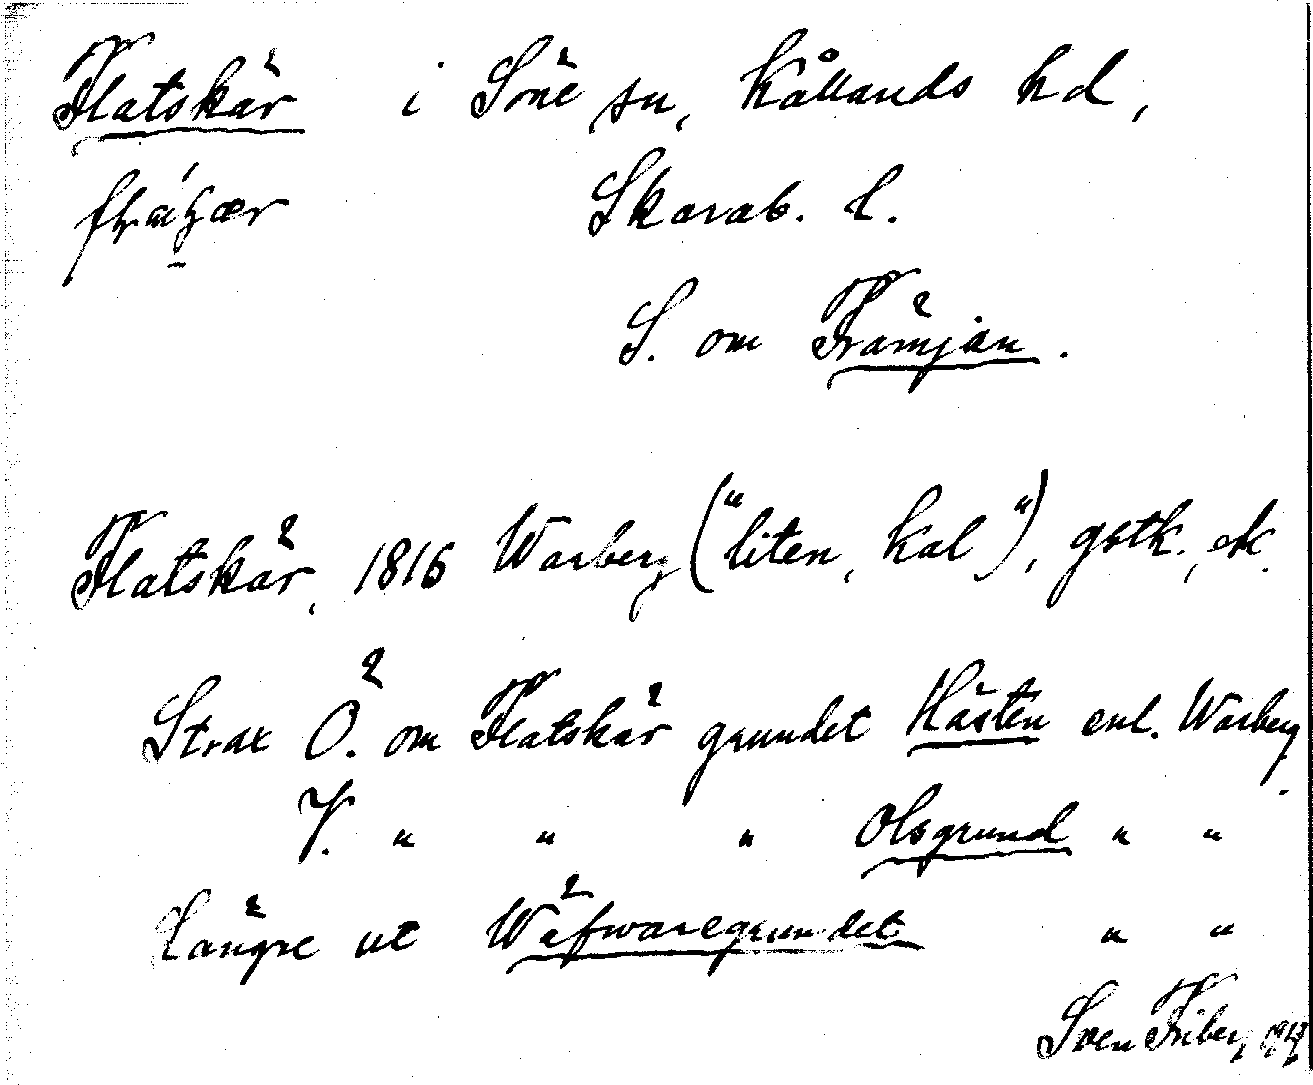 Flatskär i Söne sn, Kållands hd,
Skarab. l.
S. om Främjan.
Flatskär, 1816 Warberg ("liten, kal"), gstk., ek.
Strax Ö. om Flatskär grundet Hästen enl. Warberg.
V. " " " Olsgrund " "
Längre ut Wäfwaregrundet " "
Sven Friberg